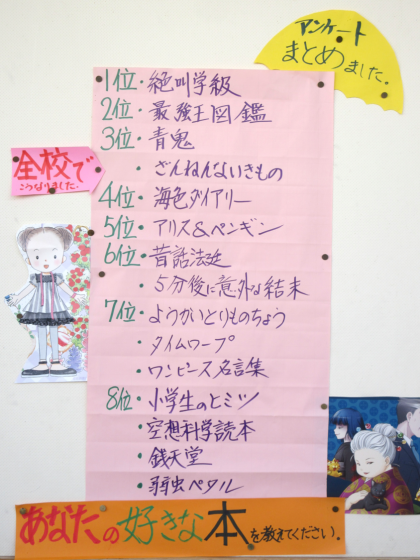 アンケート
まとめました.
1位・絶叫学級
2位・最強王図鑑
3位・青鬼
・ざんねんないきもの
全校で
こうなりました.
4位・海色ダイアリー
5位・アリス&ペンギン
6位・昔話法廷
・5分後に意外な結末
7位・ようかいとりものちょう
・タイムワープ
・ワンピース名言集
8位・小学生のヒミツ
・空想科学読本
・銭天堂
・弱虫ペダル
あなたの好きな本を教えてください.